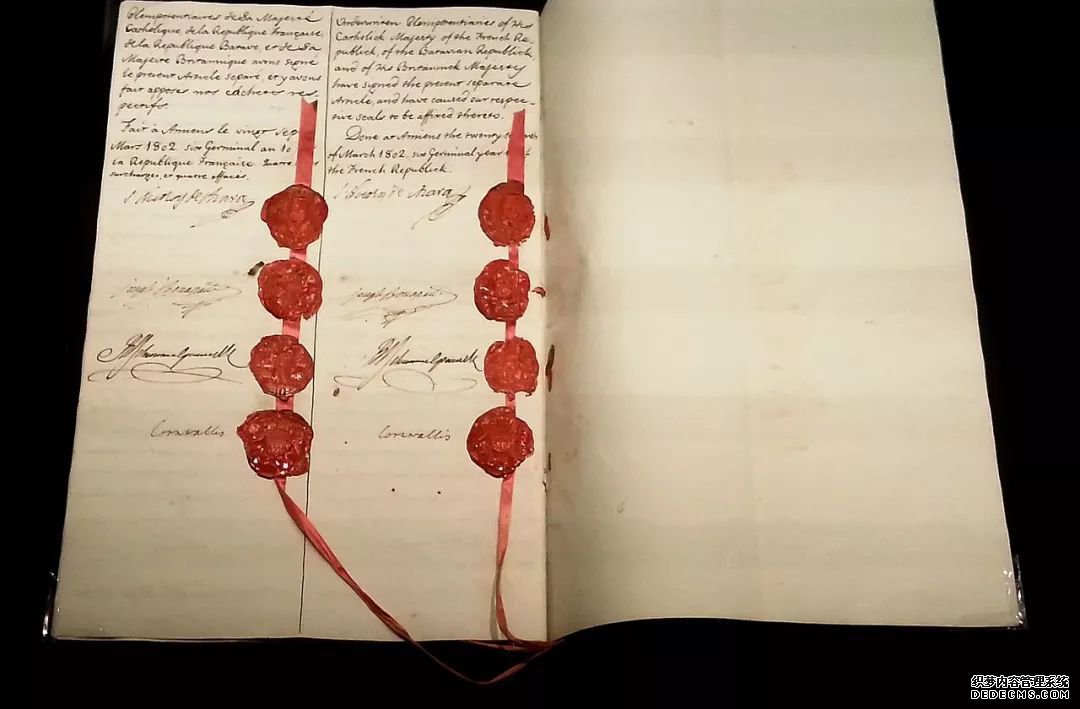 Plenipotentiaires de Sa Majesté
Catholique, de la Republique Française,
de la Republique Batave, et de Sa
Majeste Britannique avons signé
le present Article separé, et y avons
fait apposer nos cachets res-
pectifs.
Fait à Amiens le vingt sep
Mars 1802. six Germinal an 10
la Republique Française. quatre
surchargés, et quatre effacés.
Underwriten Plenipotentiaries of His
Catholick Majesty of the French Re-
publick, of the Batavian Republick,
and of His Britannick Majesty
have signed the present separate
Article, and have caused our respec-
tive seals to be affixed thereto.
Done at Amiens the twenty
of March 1802. six Germinal year
the French Republick.
Cornwallis
Cornwallis
织梦内容管理系统
DEDECMS.COM